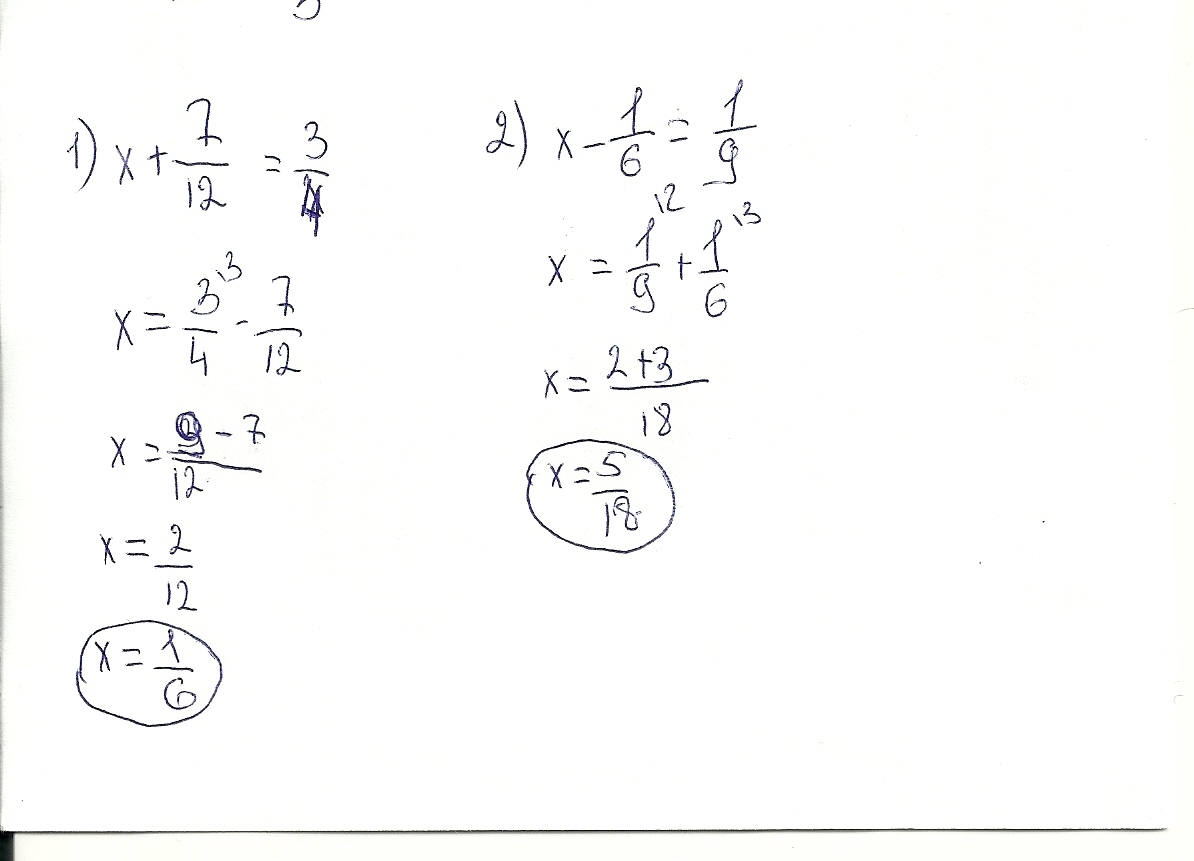 1) x + 7/12 = 3/4
x = 3/4 \3 - 7/12
x = 9 - 7/12
x = 2/12
x = 1/6
2) x - 1/6 = 1/9
x = 1/9 \2 + 1/6 \3
x = 2 + 3/18
x = 5/18